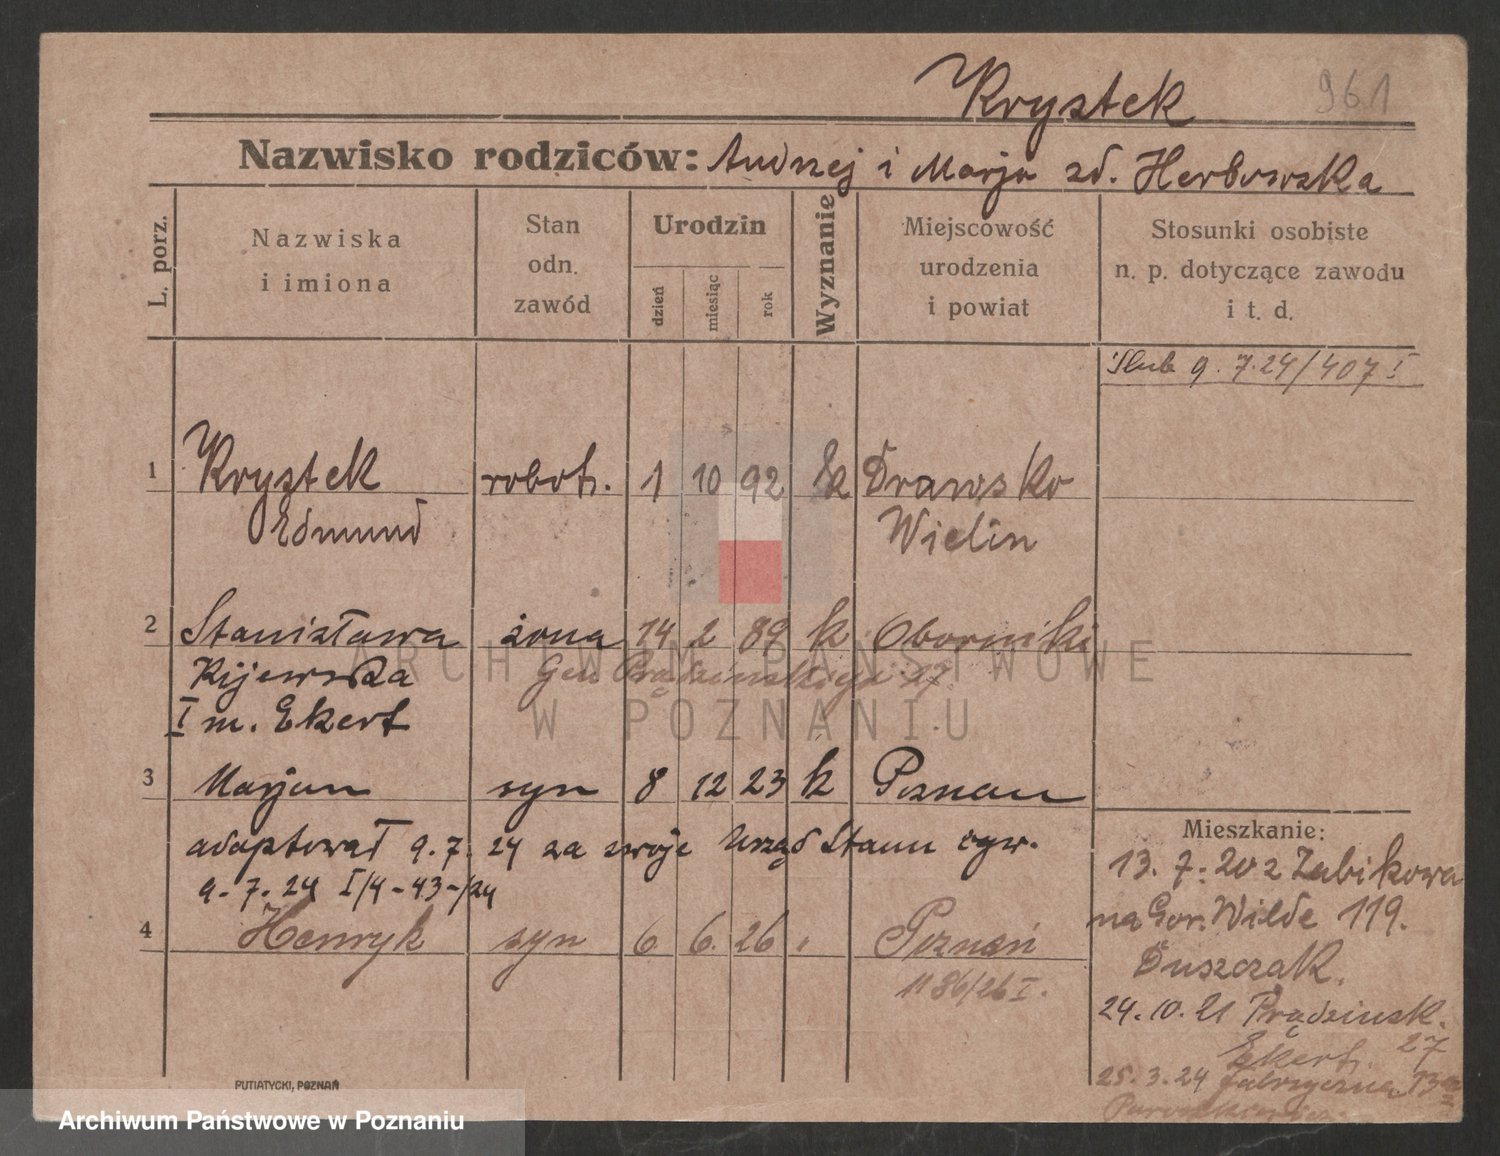 Krystek 961
Nazwisko rodziców: Andrzej i Marja zd. Herbowska
L. porz.
Nazwiska i imiona
Stan odn. zawód
Urodzin
dzień miesiąc rok
Wyznanie
Miejscowość urodzenia i powiat
Stosunki osobiste n. p. dotyczące zawodu i t. d.
Ślub 9. 7. 24/407 I
1 Krystek robotn. 1 10 92 k Drawsko
Edmund Wielin
2 Stanisława żona 14 2 89 k Oborniki
Kijewska Gen Prądzińskiego 27
I m. Ekert
ARCHIWUM PAŃSTWOWE
W POZNANIU
3 Marjan syn 8 12 23 k Poznań
adoptował 9. 7. 24 za swoje Urząd Stanu cyw.
9. 7. 24 I/4-43-/24
4 Henryk syn 6 6. 26 Poznań
1186/26 I.
Mieszkanie:
13. 7. 20 z Żabikowa
na Gór. Wilde 119.
Duszczak.
24. 10. 21 Prądzińsk. 27
Ekert.
25. 3. 24 Fabryczna 13
PUTIATYCKI, POZNAŃ
Archiwum Państwowe w Poznaniu